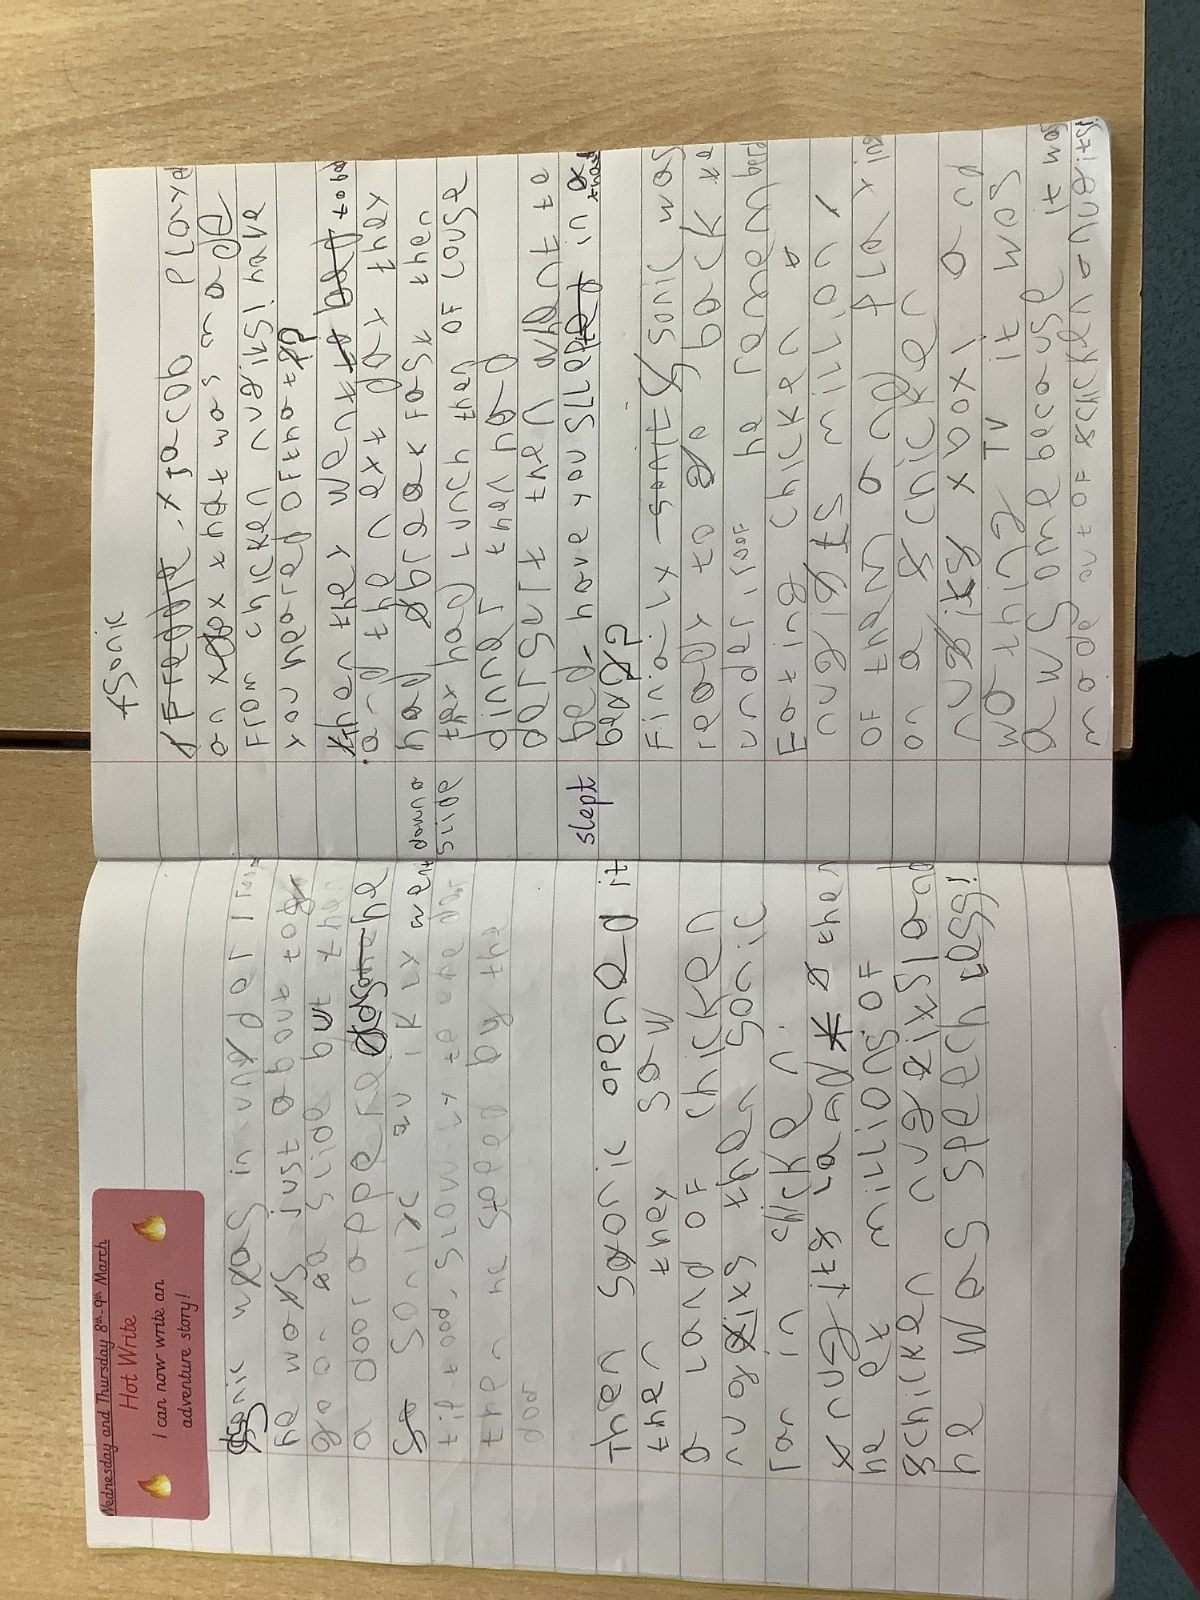 Wednesday and Thursday 8th-9th March
Hot Write
I can now write an
adventure story!
Sonic was in
he was just about to
go on a slide but then
a door appere the
So Sonic went down a
slide
til tood, slowly to the dor
then he steped by the
dor
Then sonic opened it
then they saw
a land of chicken
nugits then sonic
ran in chicken
nugits land then
he et millions of
chicken nugits! and
he was speechless!
Sonic
Jacob playd
on that was made
from chicken nugiks! have
you heared of that?
then they went to bed
and the next day they
had breakfast then
they had lunch then of couse
dinner they had
dersurt then went to
bed. have you slept in that
slept
bed?
Finialy sonic was
ready to go back to
underroor he remembed
Eating chicken
nugits million!
of them and playing
on a chicken
nugiks xbox! and
wothing TV it was
awsome because it was
made out of chicken nugits!